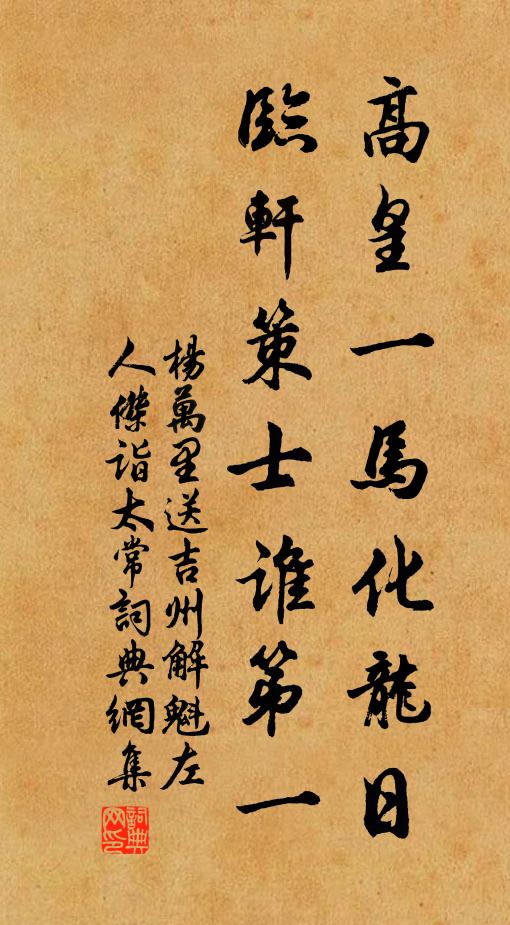 高皇一馬化龍日
臨軒策士誰第一
楊萬里送吉州解魁左
人傑詣太常詞典網集
詞典网印